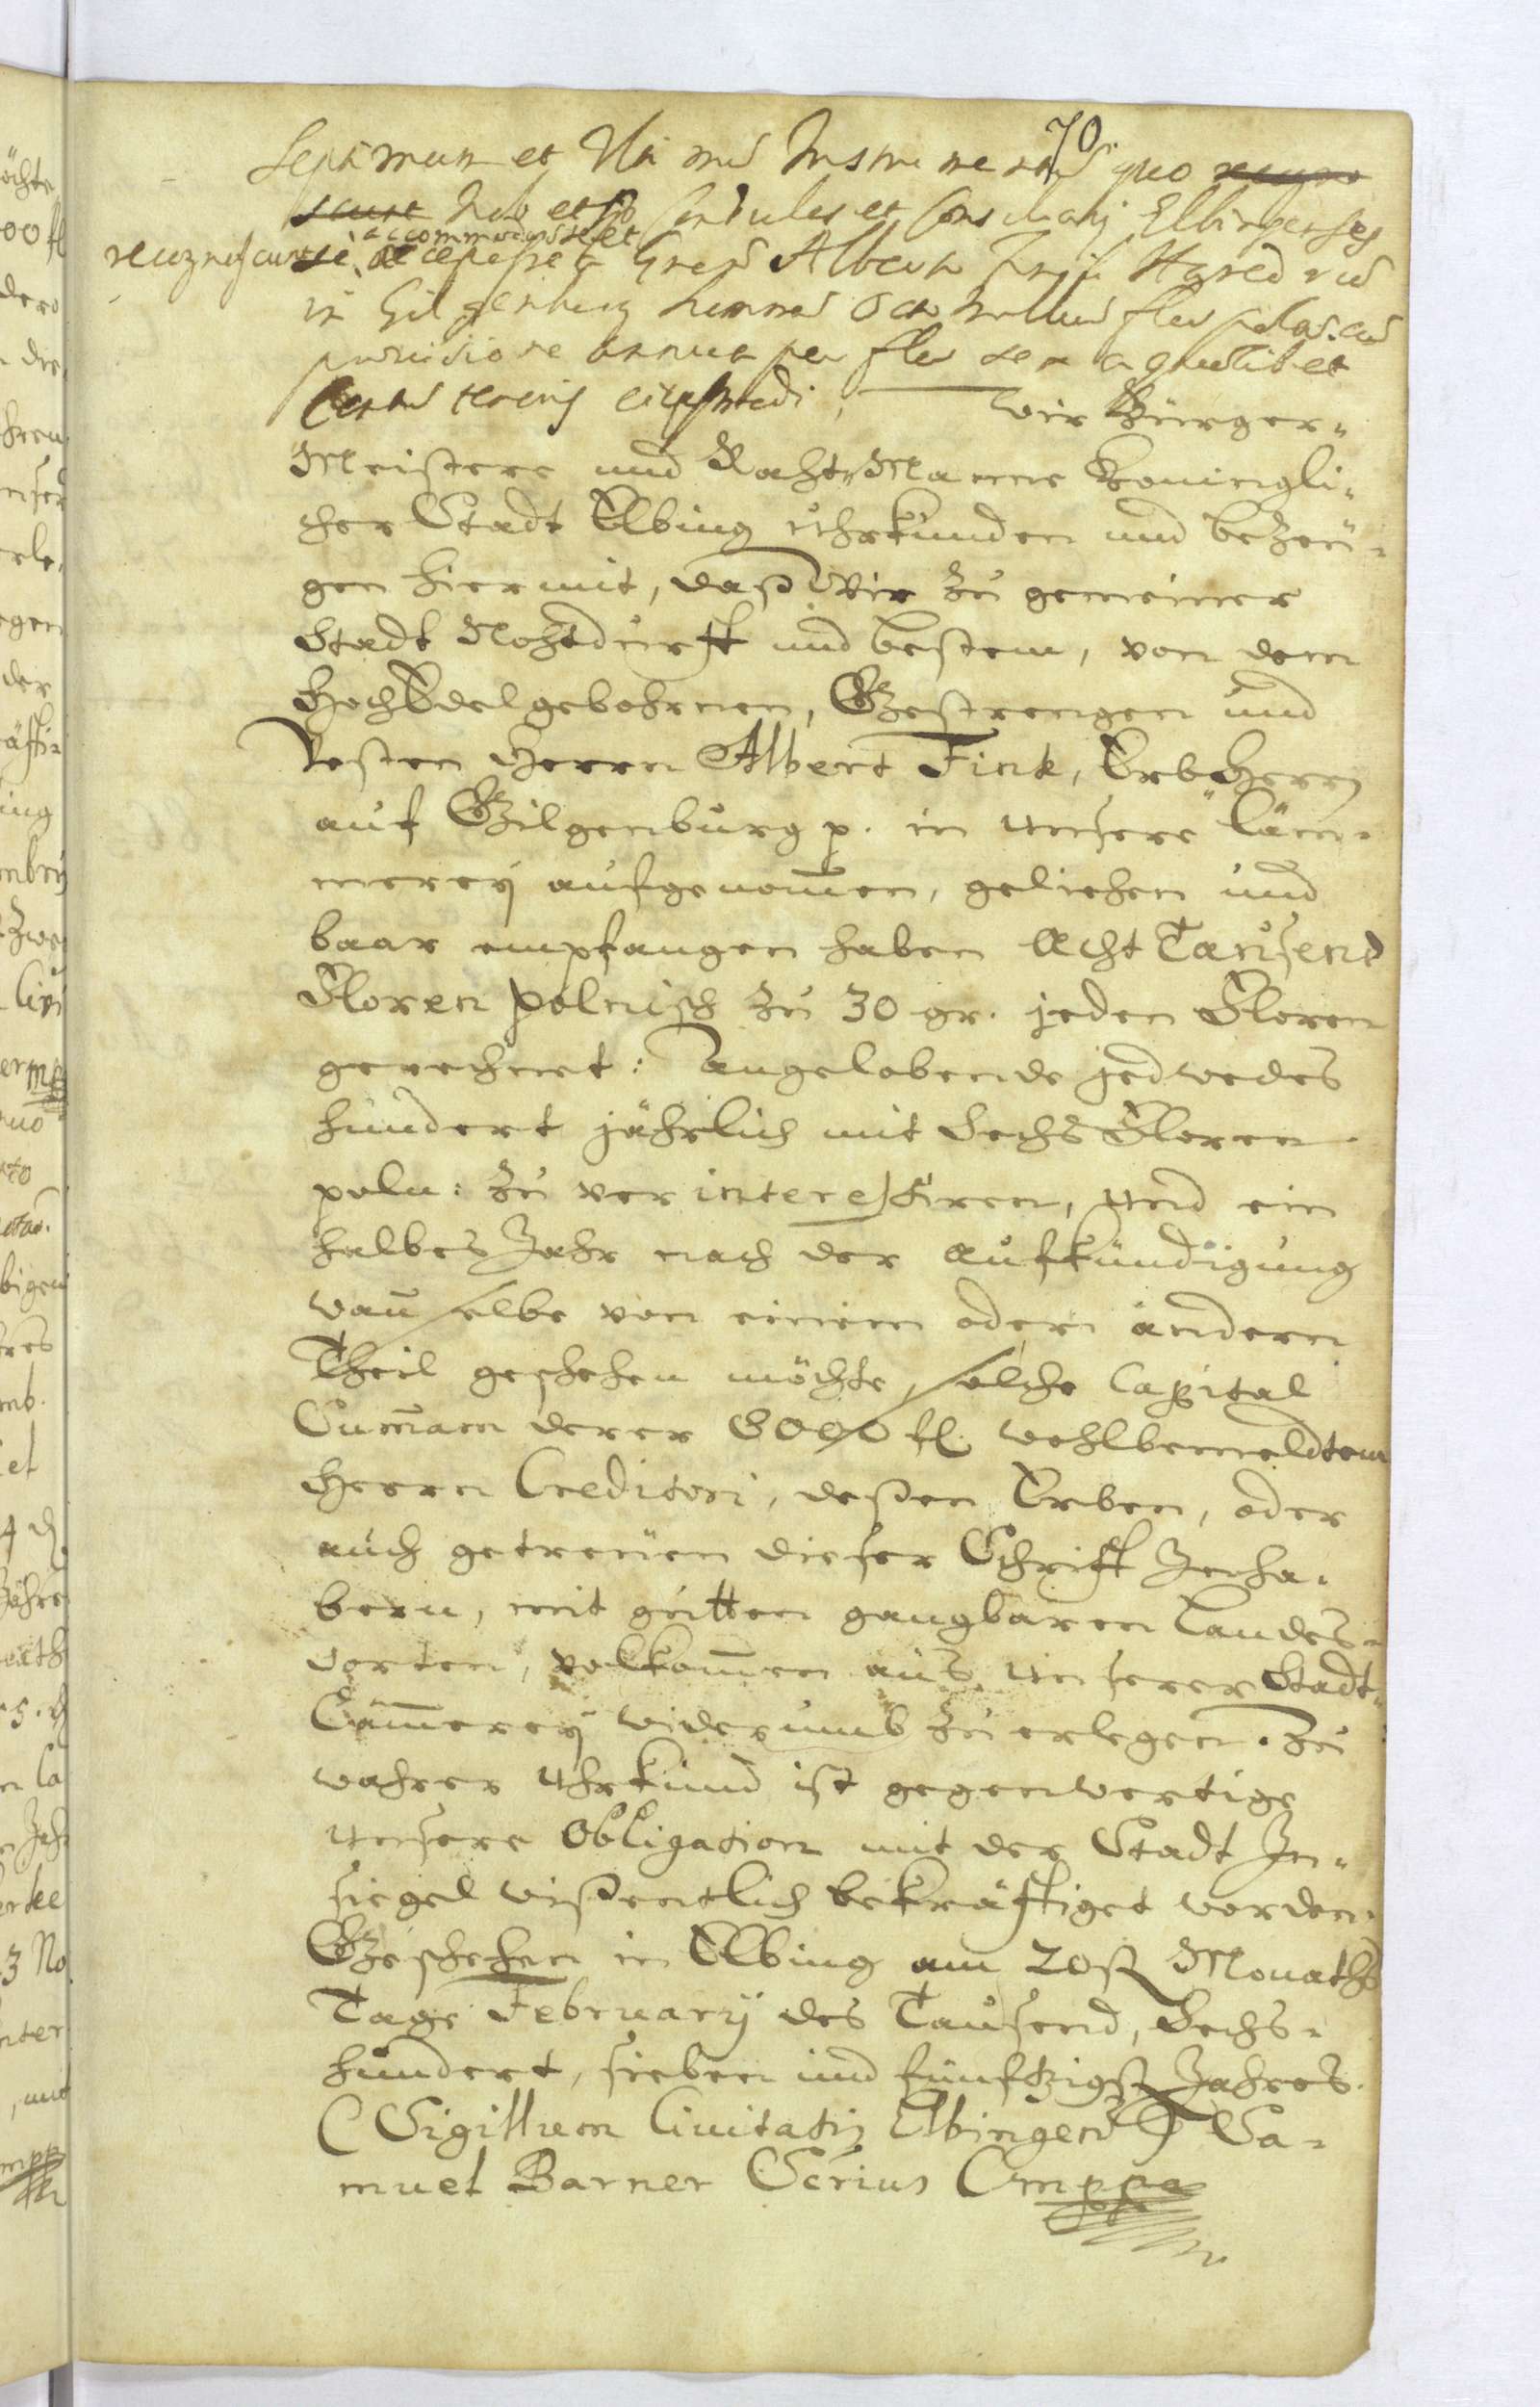 70.
Septimum et Ultimum Instrumentum quo recogno
scunt Nob et Sp Consules et Consulares Elbingenses
recognoscunt se accommodasse et accepisse a Gnero Alberto Finck Haered
in Gilgenburg summam Octo millium flor polon. cum
provisione annua per flor sex a quolibet
Centum tenoris eiusmodi, Wir Bürger„
Meistere und Raht Manne Koningli„
cher Stadt Elbing uhrkunden und bezeu„
gen hiermit, daß Wir zu gemeiner
Stadt Nohtdurfft und bestem, von dem
HochEdelgebohrnen, Gestrengen und
Vesten Herrn Albert Fink, ErbHerrn
auf Gilgenburg p. in unsere Cäm„
merey aufgenom̄en, geliehen und
baar empfangen haben Acht Tausend
Floren polnisch zu 30 gr. jeden Floren
gerechnet: Angelobende jedwedes
hundert jährlich mit Sechs Floren
poln: zu verinteressiren, und ein
halbes Jahr nach der Aufkündigung
wan̄ selbe von einem oder andern
Theil geschehen möchte, solche Capital
Sum̄am derer 8000 fl. wohlbemeldtem
Herrn Creditori, deßen Erben, oder
auch getreuen dieser Schrifft Inha„
bern, mit gutten gangbaren Landes„
Sorten, volkom̄en aus unserer Stadt„
Cäm̄erey widerumb zu erlegen. Zu
wahrer Uhrkund ist gegenwertige
unsere Obligation mit der Stadt In„
siegel wißentlich bekräftiget worden.
Geschehen in Elbing am 20st Monaths
Tage February des Tausend, Sechs„
hundert, sieben und funftzigst Jahres.
(Sigillum Civitatis Elbingens) Sa„
muel Barner Scrius Cmppa